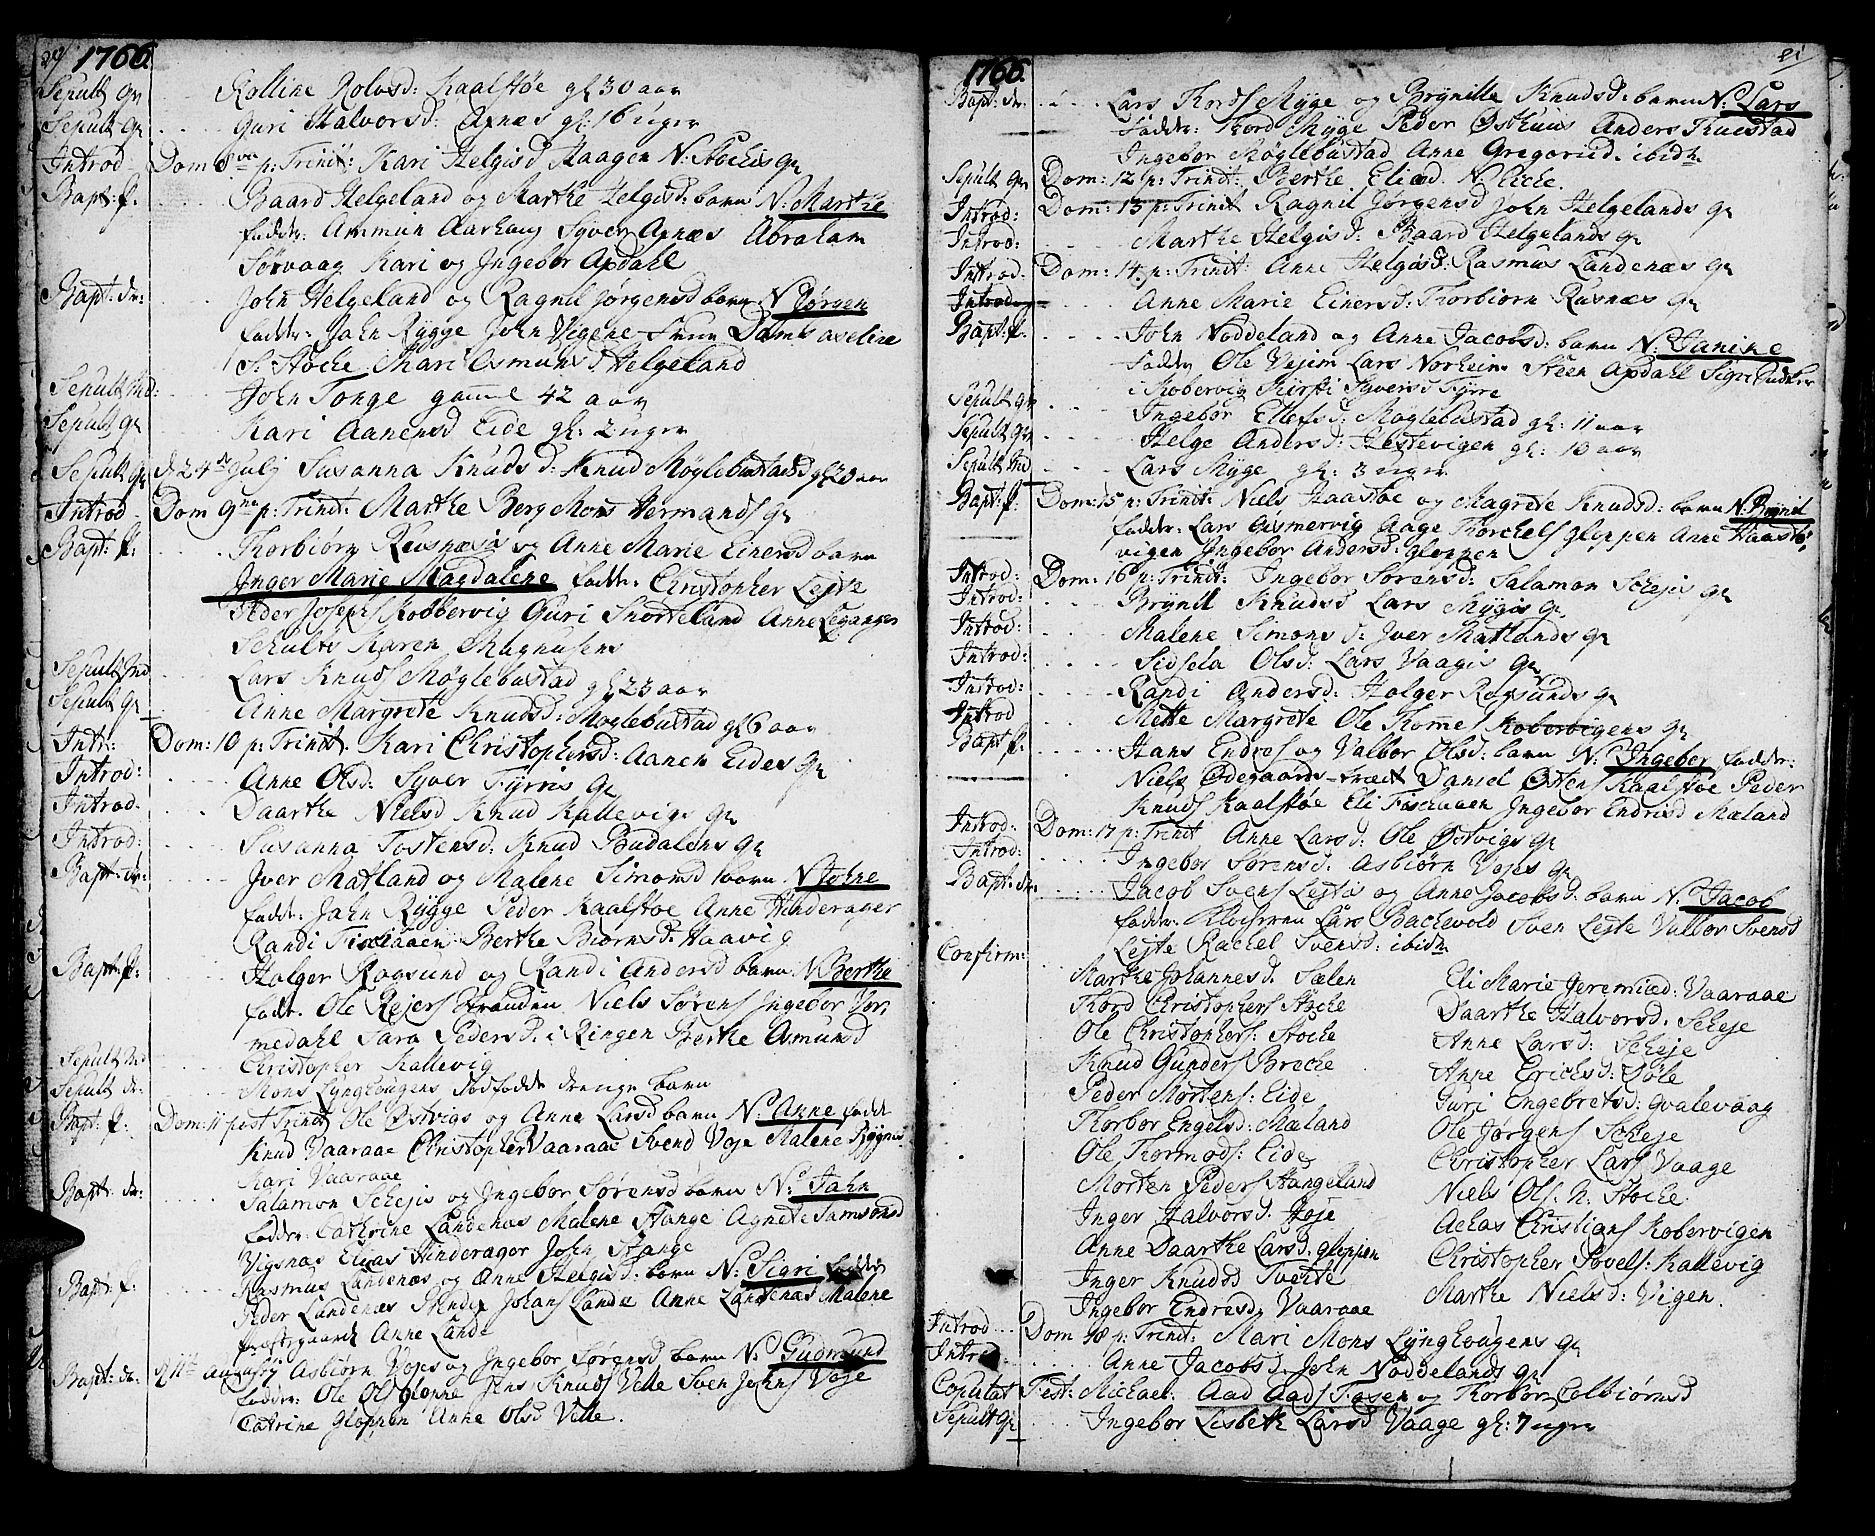 20/ 1766.
Sepult qv Rolline Rolvsd: Kaalstøe gl 30 aar
Sepult qv Guri Halvorsd: Apnæs gl: 16 uger
Introd Dom 8va p: Trinit: Kari Helgisd Haagen N: Stockis qv
Bapt: p. Baard Helgeland og Marthe Helgisd: barn N: Marthe
fadder: Ammun Aarhaug Syver Apnæs Abraham
Sørvaag Kari og Ingebor Apdahl
Bapt: dr: John Helgeland og Ragnil Jørgensd barn N Jørgen
fadder: John Rygge John Vigene
S: Stocke Mari Osmunsd Helgeland
Sepult Md: John Tonge gammel 42 aar
Sepult qv Kari Aanensd Eide gl: 2 uger
Sepult qv d 24de July Susanna Knudsd: Knud Møglebustads gl 20 aar
Introd Dom 9na p: Trinit: Marthe Berg Mons Hermands qv
Bapt: p: Thorbiørn Reusnæsis og Anne Marie Einersd barn
Inger Marie Magdalene fadder: Christopher Lejte
Peder Josephs Kobbervig Guri Snorteland Anne Leganger
Schults Karen Magnusens
Sepult Md Lars Knuds Møglebustad gl 23 aar
Sepult qv Anne Margrete Knudsd: Møglebustad gl 6 aar
Intr: Dom: 10 p: Trinit. Kari Christophersd: Aanen Eides qv
Introd: Anne Olsd: Syver Tyrris qv
Introd: Daarthe Nielsd Knud Kallevigs qv
Introd: Susanna Tostensd: Knud Budalens qv
Bapt: dr: Iver Matland og Malene Simonsd barn N John
fadd: John Rygge Peder Kaalstøe Anne Hinderager
Randi Fischaaen Berthe Biørnsd: Haavig
Bapt: p: Holger Rogsund og Randi Andersd barn N Berthe
fadr. Ole Rejers Stranden Niels Sørens Ingebor Vor,
medahl Sara Pedersd. i Ringen Berthe Asmunsd
Sepult Md Christopher Kallevig
Sepult dr: Mons Lynghougens dødfødde drenge barn
Bapt: p: Dom: 11 post Trinit Ole Østvigs og Anne Larsd barn N: Anne fadd
Knud Vaaraae Christopher Vaaraae Svend Voje Malene Rygnes
Kari Vaaraae
Bapt: dr: Salamon Schejis og Ingebor Sørensd barn N: John
fadder: Cathrine Landenæs Malene Stange Agnete Samsonsd
Vigsnæs Elias Hinderager John Stange
Bapt: p: Rasmus Landenæs og Anne Helgisd: barn N: Sigri fadder
Peder Landenæs Johans Lande Anne Landenæs Malene
Præstegaard Anne Lande
Bapt: dr. d 11te August Asbiørn Vojes og Ingebor Sørensd barn N: Gudmund
fadder: Ole Ols Glenne Jens Knuds Velle Sven Johns Voje
Catrine Gloppen Anne Olsd Velle.
1766. 21
Bapt: dr. Lars Thords Myge og Brynille Knudsd: barn N: Lars
fadder: Thord Myge Peder Østhuus Anders Thuestad
Ingebor Møglebustad Anne Gregorisd. ibidm
Sepult qv Dom: 12 p: Trinit: Berthe Eliæd. N
Introd: Dom: 13 p: Trinit Ragnil Jørgensd John Helgelands qv
Introd: Marthe Helgisd: Baard Helgelands qv
Introd: Dom: 14 p: Trinit: Anne Helgisd: Rasmus Landenæs qv
Introd Anne Marie Einersd: Thorbiørn Rusnæs qv
Bapt: p. John Noddeland og Anne Jacobsd: barn N: Janine
fadder Ole Vejim Lars Norheim Steen Apdahl
i Kobervig Kirsti Syversd Tyrre
Sepult qv Ingebor Ellefsd: Møglebustad gl: 11 aar
Sepult qv Helge Andersd: Hestevigen gl: 10 aar
Sepult Md Lars Myge gl: 3 uger
Bapt: p: Dom: 15 p: Trinit: Niels Haastøe og Magrete Knudsd: barn N: Brynil
fadder: Lars Aasmervig Aage Torchels Gloppen Anne Haastøe,
vigen Ingebor Andersd: gloppen
Introd: Dom: 16 p: Trinit: Ingebor Sørensd: Salamon Schejis qv
Introd: Brynil Knudsd Lars Mygis qv
Introd: Malene Simonsd: Iver Matlands qv
Introd: Sidsela Olsd: Lars Vaagis qv
Introd: Randi Andersd: Holger Rogsunds qv
Introd Mette Margrete Ole Thommes Kobervigens qv
Bapt p: Hans Endres og Valbor Olsd: barn N: Ingebor fadder:
Niels Ødegaards Daniel Østens Kaalstøe Peder
Knuds Kaalstøe Eli Fischaaen Ingebor Endrisd Mæland
Introd: Dom: 17 p: Trinit Anne Larsd: Ole Østvigs qv
Introd: Ingebor Sørensd: Asbiørn Vojes qv
Bapt: dr. Jacob Svens Lejtes og Anne Jacobsd: barn N: Jacob
fadder: Lars Backevold Sven Lejte Valbor Svensd
Lejte Rachel Svensd: ibidm
Confirm:
Marthe Johannesd. Sælen
Thord Christophers Stocke
Ole Christophers: Stocke
Knud Gunders Brecke
Peder Mortens: Eide
Thorbor Engelsd: Mæland
Ole Thormods: Eide
Morten Peders Hangeland
Inger Halvorsd. Joje
Anne Daarthe Larsd. gloppen
Inger Knudsd Tveite
Ingebor Endresd, Vaaraae
Eli Marie Jeremiæd: Vaaraae
Daarthe Halvorsd: Scheje
Anne Larsd: Scheje
Anne Erichsd: Døle
Guri Engebretsd: Qvalevaag
Ole Jørgens Scheje
Christopher Lars Vaage
Niels Ols. N. Stocke.
Achas Christians Kobervigen
Christopher Povels: Kallevig
Marthe Nielsd: Vigen.
Introd Dom 18 p: Trinit: Mari Mons Lynghougens qv
Introd Anne Jacobsd. John Noddelands qv
Copulat Fest: Michael: Aad Aads Fosen og Thorbor Colbiørnsd
Sepult qv Ingebor Lisbeth Larsd Vaage gl: 7 uger